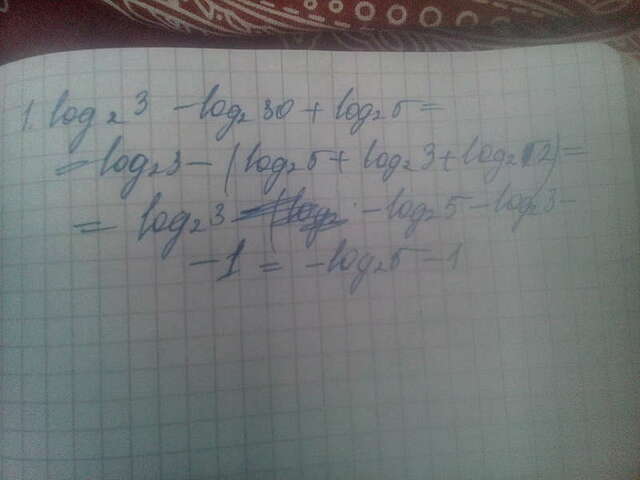 1. log₂3 - log₂30 + log₂5 =
= log₂3 - (log₂5 + log₂3 + log₂2) =
= log₂3 - log₂5 - log₂3 -
- 1 = - log₂5 - 1